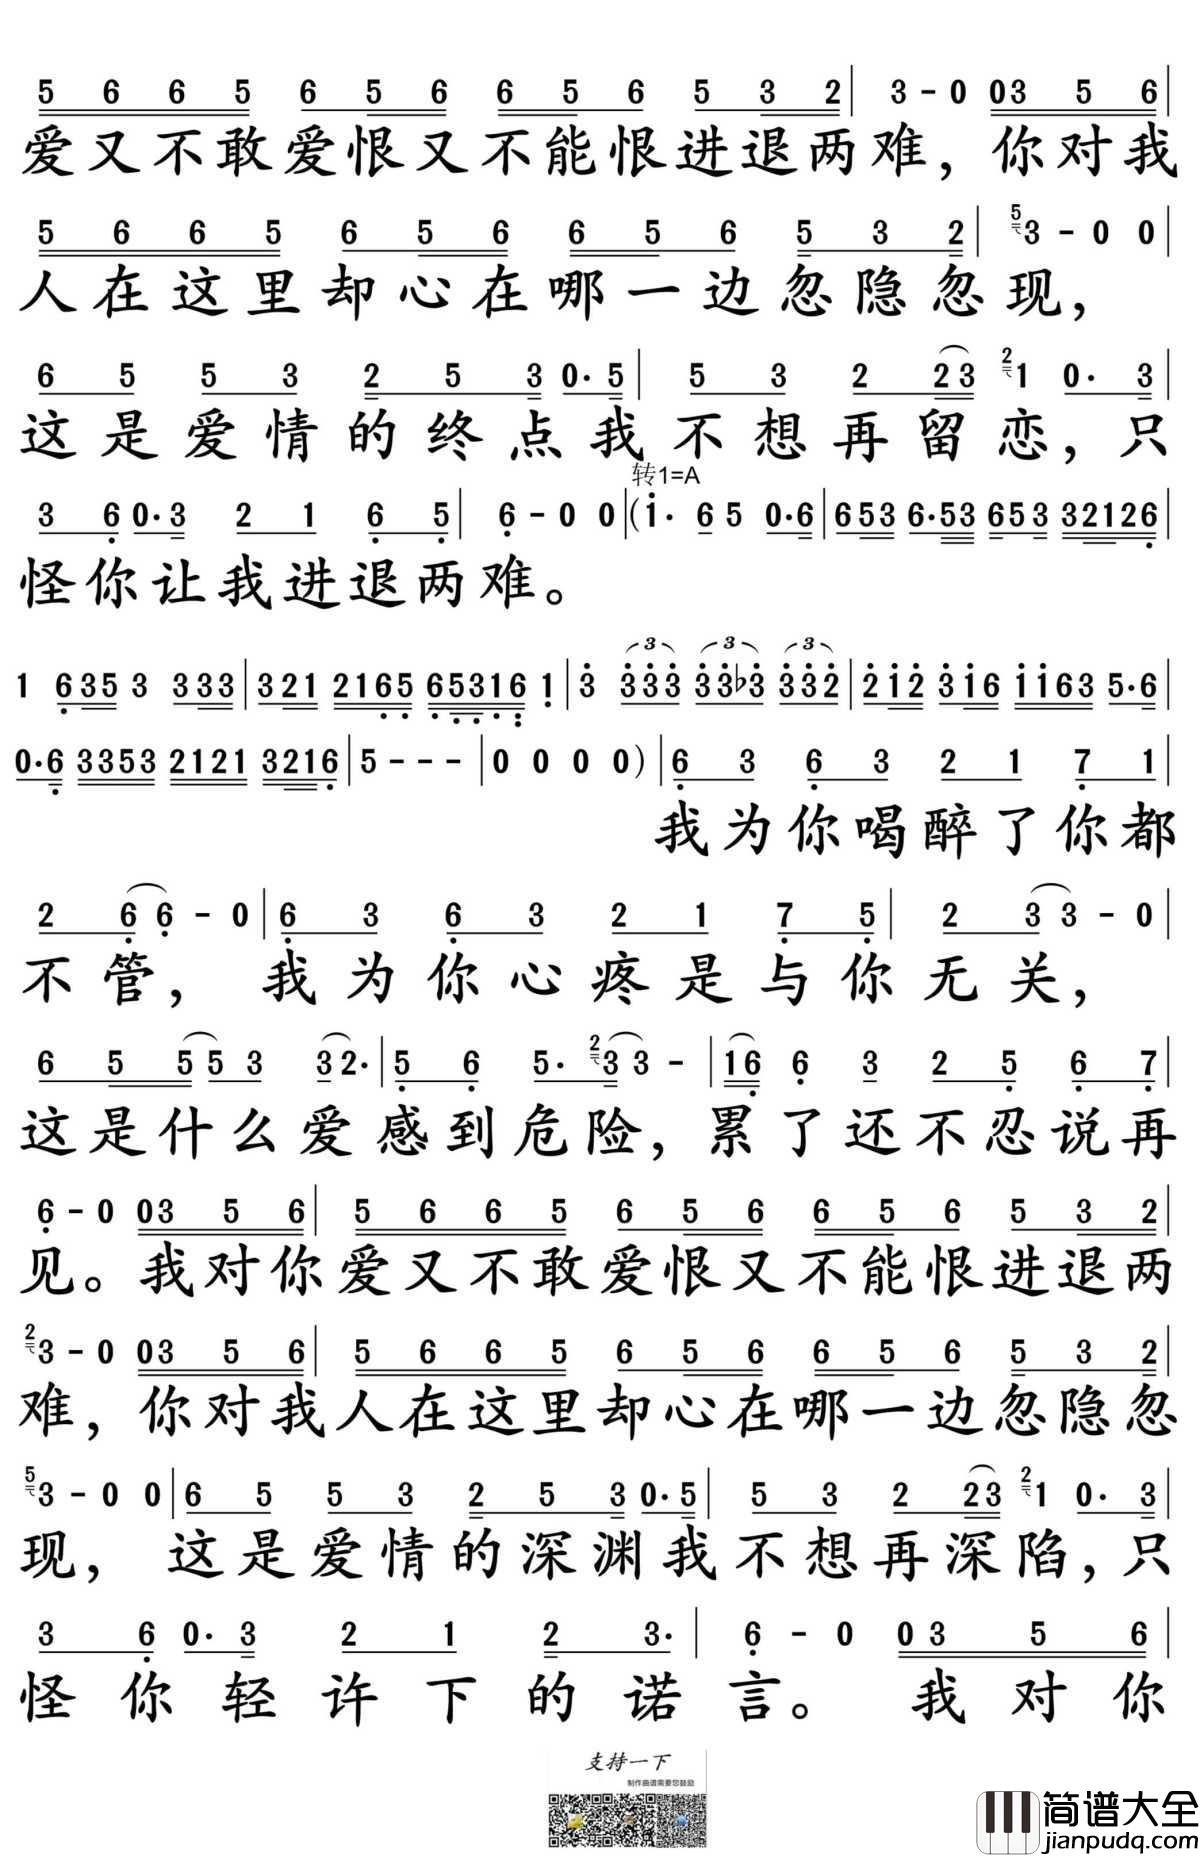 5 6 6 5 6 5 6 6 5 6 5 3 2 | 3 - 0 03 5 6 |
爱又不敢爱恨又不能恨进退两难，你对我
5 6 6 5 6 5 6 6 5 6 5 3 2 | 5 3 - 0 0 |
人在这里却心在哪一边忽隐忽现，
6 5 5 3 2 5 3 0· 5 | 5 3 2 23 2 1 0· 3 |
这是爱情的终点我不想再留恋，只
转1=A
3 6 0·3 2 1 6 5 | 6 - 0 0 | (i· 6 5 0·6 | 653 6·53 653 32126 |
怪你让我进退两难。
3 3 3
1 635 3 333 | 321 2165 65316 1 | 3 333 33b3 332 | 2i2 3i6 ii63 5·6 |
0·6 3353 2121 3216 | 5 - - - | 0 0 0 0) | 6 3 6 3 2 1 7 1 |
我为你喝醉了你都
2 6 6 - 0 | 6 3 6 3 2 1 7 5 | 2 3 3 - 0 |
不管，我为你心疼是与你无关，
6 5 5 5 3 3 2· | 5 6 5· 2 3 3 - | 16 6 3 2 5 6 7 |
这是什么爱感到危险，累了还不忍说再
6 - 0 03 5 6 | 5 6 6 5 6 5 6 6 5 6 5 3 2 |
见。我对你爱又不敢爱恨又不能恨进退两
2 3 - 0 03 5 6 | 5 6 6 5 6 5 6 6 5 6 5 3 2 |
难，你对我人在这里却心在哪一边忽隐忽
5 3 - 0 0 | 6 5 5 3 2 5 3 0·5 | 5 3 2 23 2 1 0· 3 |
现，这是爱情的深渊我不想再深陷，只
3 6 0· 3 2 1 2 3· | 6 - 0 0 3 5 6 |
怪你轻许下的诺言。我对你
支持一下
制作曲谱需要您鼓励
简谱大全
jianpudq.com